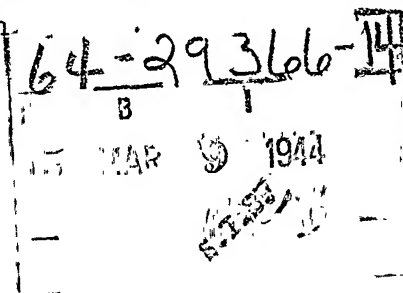 64-29366-14
B 1
15 MAR 9 1944